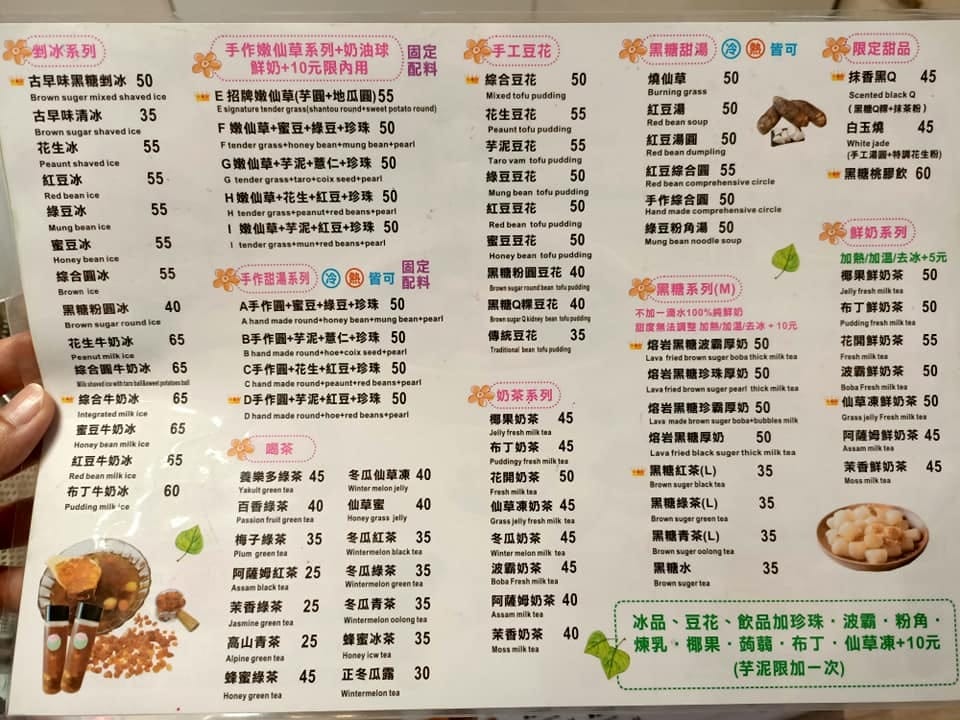 剉冰系列
古早味黑糖剉冰 50
Brown suger mixed shaved ice
古早味清冰 35
Brown sugar shaved ice
花生冰 55
Peaunt shaved ice
紅豆冰 55
Red bean ice
綠豆冰 55
Mung bean ice
蜜豆冰 55
Honey bean ice
綜合圓冰 55
Brown ice
黑糖粉圓冰 40
Brown sugar round ice
花生牛奶冰 65
Peanut milk ice
綜合圓牛奶冰 65
Milk shaved ice with taro ball&sweet potatoes ball
綜合牛奶冰 65
Integrated milk ice
蜜豆牛奶冰 65
Honey bean milk ice
紅豆牛奶冰 65
Red bean milk ice
布丁牛奶冰 60
Pudding milk ice
手作嫩仙草系列+奶油球
鮮奶+10元限內用
固定
配料
E 招牌嫩仙草(芋圓+地瓜圓)55
E signature tender grass(shantou round+sweet potato round)
F 嫩仙草+蜜豆+綠豆+珍珠 50
F tender grass+honey bean+mung bean+pearl
G嫩仙草+芋泥+薏仁+珍珠 50
G tender grass+taro+coix seed+pearl
H 嫩仙草+花生+紅豆+珍珠 50
H tender grass+peanut+red beans+pearl
I 嫩仙草+芋泥+紅豆+珍珠 50
I tender grass+mun+red beans+pearl
手作甜湯系列 冷 熱 皆可
固定
配料
A手作圓+蜜豆+綠豆+珍珠 50
A hand made round+honey bean+mung bean+pearl
B手作圓+芋泥+薏仁+珍珠 50
B hand made round+hoe+coix seed+pearl
C手作圓+花生+紅豆+珍珠 50
C hand made round+peaunt+red beans+pearl
D手作圓+芋泥+紅豆+珍珠 50
D hand made round+hoe+red beans+pearl
喝茶
養樂多綠茶 45
Yakult green tea
百香綠茶 40
Passion fruit green tea
梅子綠茶 35
Plum green tea
阿薩姆紅茶 25
Assam black tea
茉香綠茶 25
Jasmine green tea
高山青茶 25
Alpine green tea
蜂蜜綠茶 45
Honey green tea
冬瓜仙草凍 40
Winter melon jelly
仙草蜜 40
Honey grass jelly
冬瓜紅茶 35
Wintermelon black tea
冬瓜綠茶 35
Wintermelon green tea
冬瓜青茶 35
Wintermelon oolong tea
蜂蜜冰茶 35
Honey icw tea
正冬瓜露 30
Wintermelon tea
手工豆花
綜合豆花 50
Mixed tofu pudding
花生豆花 55
Peaunt tofu pudding
芋泥豆花 55
Taro vam tofu pudding
綠豆豆花 50
Mung bean tofu pudding
紅豆豆花 50
Red bean tofu pudding
蜜豆豆花 50
Honey bean tofu pudding
黑糖粉圓豆花 40
Brown sugar round bean tofu pudding
黑糖Q粿豆花 40
Brown sugar Q kidney bean tofu pudding
傳統豆花 35
Traditional bean tofu pudding
奶茶系列
椰果奶茶 45
Jelly fresh milk tea
布丁奶茶 45
Puddingy fresh milk tea
花開奶茶 50
Fresh milk tea
仙草凍奶茶 45
Grass jelly fresh milk tea
冬瓜奶茶 45
Winter melon milk tea
波霸奶茶 45
Boba Fresh milk tea
阿薩姆奶茶 40
Assam milk tea
茉香奶茶 40
Moss milk tea
黑糖甜湯 冷 熱 皆可
燒仙草 50
Burning grass
紅豆湯 50
Red bean soup
紅豆湯圓 50
Red bean dumpling
紅豆綜合圓 55
Red bean comprehensive circle
手作綜合圓 50
Hand made comprehensive circle
綠豆粉角湯 50
Mung bean noodle soup
黑糖系列(M)
不加一滴水100%純鮮奶
甜度無法調整 加熱/加溫/去冰 + 10元
熔岩黑糖波霸厚奶 50
Lava fried brown suger boba thick milk tea
熔岩黑糖珍珠厚奶 50
Lava fried brown suger pearl thick milk tea
熔岩黑糖珍霸厚奶 50
Lava made brown suger boba+bubbles milk
熔岩黑糖厚奶 50
Lava fried black suger thick milk tea
黑糖紅茶(L) 35
Brown suger black tea
黑糖綠茶(L) 35
Brown sugar green tea
黑糖青茶(L) 35
Brown sugar oolong tea
黑糖水 35
Brown suger tea
限定甜品
抹香黑Q 45
Scented black Q
(黑糖Q粿+抹茶粉)
白玉燒 45
White jade
(手工湯圓+特調花生粉)
黑糖桃膠飲 60
鮮奶系列
加熱/加溫/去冰+5元
椰果鮮奶茶 50
Jelly fresh milk tea
布丁鮮奶茶 50
Pudding fresh milk tea
花開鮮奶茶 55
Fresh milk tea
波霸鮮奶茶 50
Boba Fresh milk tea
仙草凍鮮奶茶 50
Grass jelly Fresh milk tea
阿薩姆鮮奶茶 45
Assam milk tea
茉香鮮奶茶 45
Moss milk tea
冰品、豆花、飲品加珍珠・波霸・粉角・
煉乳・椰果・蒟蒻・布丁・仙草凍+10元
(芋泥限加一次)